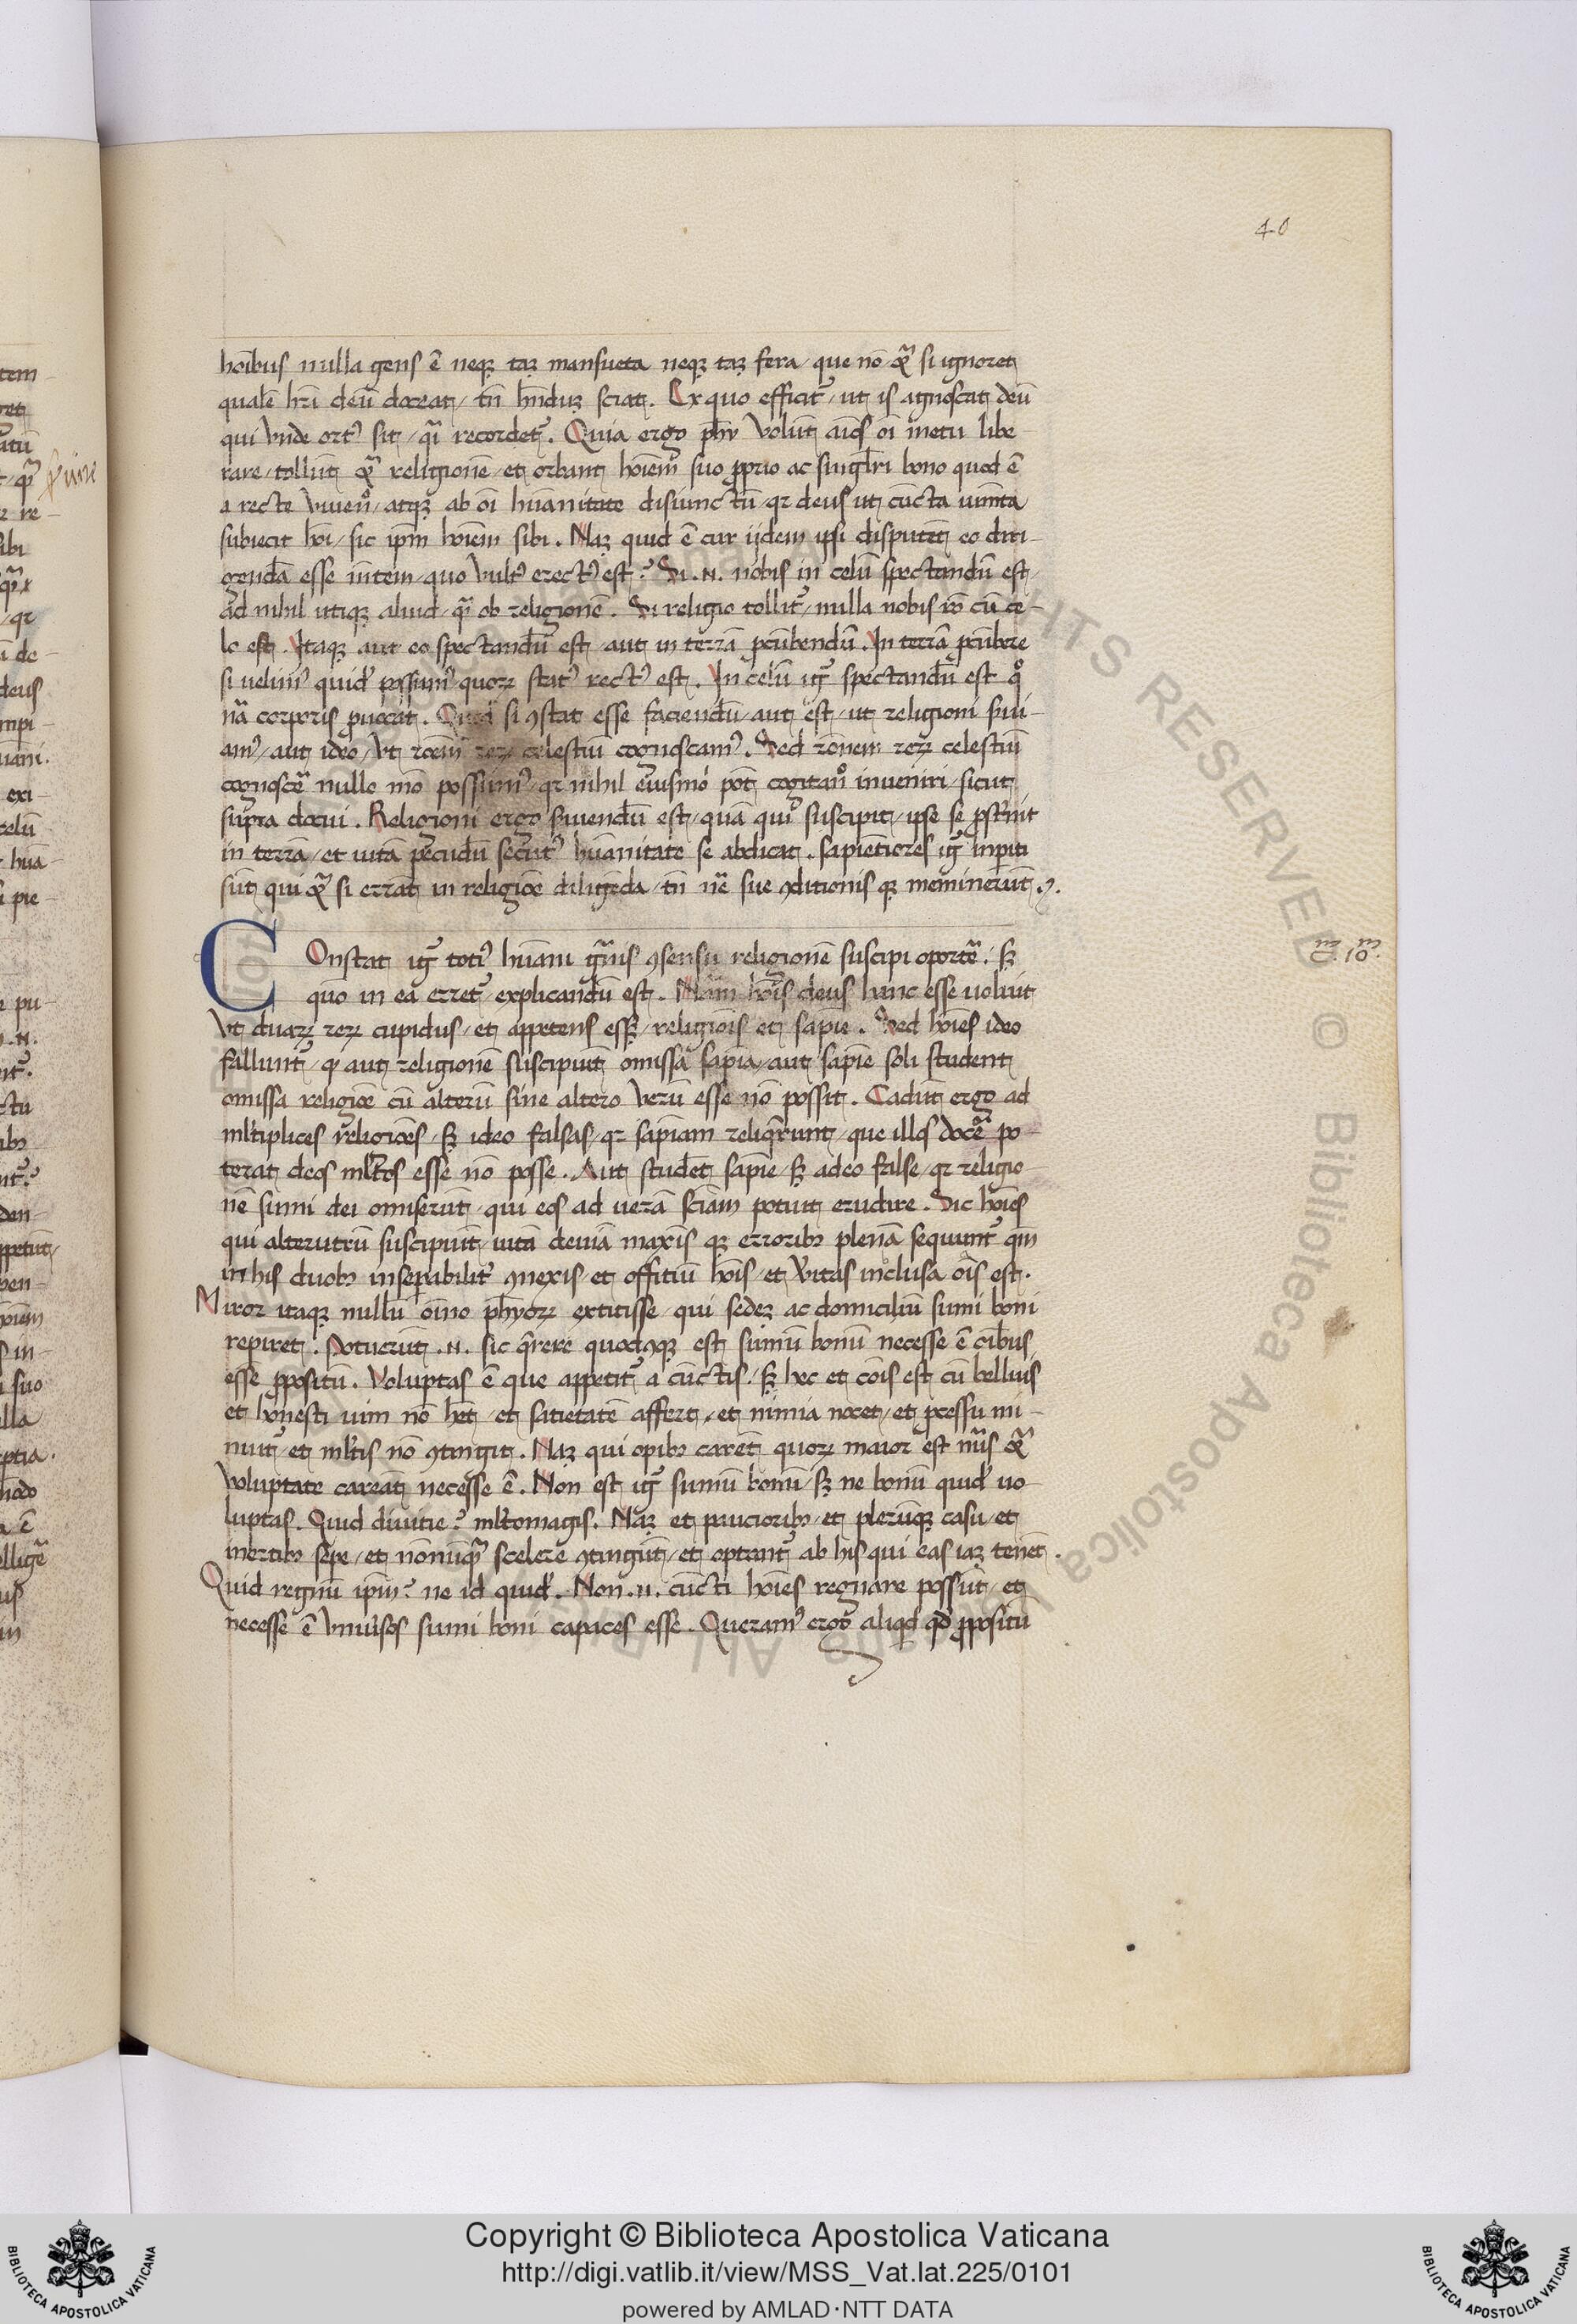 40
hoībus nulla gens ē neqꝫ taꝫ mansueta neqꝫ taꝫ fera / que nō & si ignoret
qualē hr̄i deū doceat / tn̄ hn̄duꝫ sciat. Ex quo efficit᷑ / ut is agnoscat deū
qui vnde ort᷒ sit / q̄i recordet᷑. Quia ergo phȳ volūt aīos oī metu libe-
rare / tollūt religionē / et orbant hoīem suo ꝓprio ac singl̄ri bono quod ē
a recte viuen̄ / atqꝫ ab oī hūanitate disiunctū / qꝛ deus ut cūcta uiuēta
subiecit hoī / sic ip̄m hoīem sibi. Naꝫ quid ē cur ijdem ipsi disputēt eo diri-
gendā esse mētem / quo vult᷒ erect᷒ est? Si .n. nobis in celū spectandū est /
ad nihil utiqꝫ aliud / qᷓ ob religionē. Si religio tollit᷑ / nulla nobis rō cū ce-
lo est. Itaqꝫ aut eo spectandū est / aut in terrā ꝓcūbendū. In terrā ꝓcūbere
si uelim᷒ quid̄ possum᷒ quoꝝ stat᷒ rect᷒ est. In celū igr̄ spectandū est qͦ
nā corporis ꝓuocat. si ꝯstat esse faciendū / aut est / ut religioni s̄ui-
am᷒ / aut ideo / vt rōem reꝝ celestiū cognoscam᷒. Sed rōnem reꝝ celestiū
cognoscē nullo mō possum᷒ / qꝛ nihil eiusmōi pōt cogitan̄ inueniri / sicut
supra docui. Religioni ergo s̄uiendū est / quā quiͦ suscipit / ipse se ꝓst̄nit
in terrā / et uitā pecudū secut᷒ hūanitate se abdicat. sapientiores igr̄ inꝑiti
sūt qui & si errāt in religiōe diligēda / tn̄ nē sue ꝯditionis qꝫ meminerūt.
COnstat igr̄ toti᷒ hūani gn̄is ꝯsensu religionē suscipi oportē. sꝫ
quō in ea erret᷑ explicandū est. Nām hoīs deus hanc esse uoluit
vt duaꝝ reꝝ cupidus / et appetens essꝫ / religiōis et sapīe. Sed hoīes ideo
fallunt᷑ / qꝛ aut religionē suscipiūt omissa sapīa / aut sapīe soli student
omissa religiōe cū alterū sine altero verū esse nō possit. Cadūt ergo ad
ml̄tiplices religiōes / sꝫ ideo falsas / qꝛ sapīam reliqerunt / que illos docē po-
terat deos ml̄tos esse nō posse. Aut studēt sapīe / sꝫ adeo false / qꝛ religio-
nē sumi dei omiserūt / qui eos ad uerā sciām potuit erudire. Sic hoīes
qui alterutrū suscipiūt / uitā deuiā maxīs qꝫ erroribꝫ plenā sequunt᷑ qm̄
in his duobꝫ inseꝑabilit᷑ ꝯnexis / et offitiū hoīs / et v̄itas inclusa oīs est.
C. 10.
Miror itaqꝫ nullū oīno phȳoꝝ extitisse / qui sedeꝫ ac domiciliū sumi boni
reꝑiret. Potuerūt .n. sic q̄rere quodcūqꝫ est sumū bonū necesse ē oībus
esse ꝓpositū. Voluptas ē que appetit᷑ a cūctis / sꝫ hec et cōis est cū belluis
et honesti uim nō hēt / et satietatē affert / et nimia nocet / et ꝓcessu mi-
nuit᷑ / et ml̄tis nō ꝯtingit. Naꝫ qui opibꝫ carēt quoꝝ maior est nūs &
voluptate careāt necesse ē. Non est igr̄ sumū bonū / sꝫ ne bonū quid̄ uo-
luptas. Quid diuitie? ml̄tomagis. Naꝫ et paucioribꝫ / et plerūqꝫ casu / et
inertibꝫ sepe / et nōnūqᷓ scelere ꝯtingūt / et optant᷑ ab his qui eas iaꝫ tenēt.
Quid regnū ip̄m? ne id quid̄. Non .n. cūcti hoīes regnare possūt / et
necesse ē vniūsos sumi boni capaces esse. Queram᷒ ergo aliqd qd̄ ꝓpositū
Copyright © Biblioteca Apostolica Vaticana
http://digi.vatlib.it/view/MSS_Vat.lat.225/0101
powered by AMLAD·NTT DATA